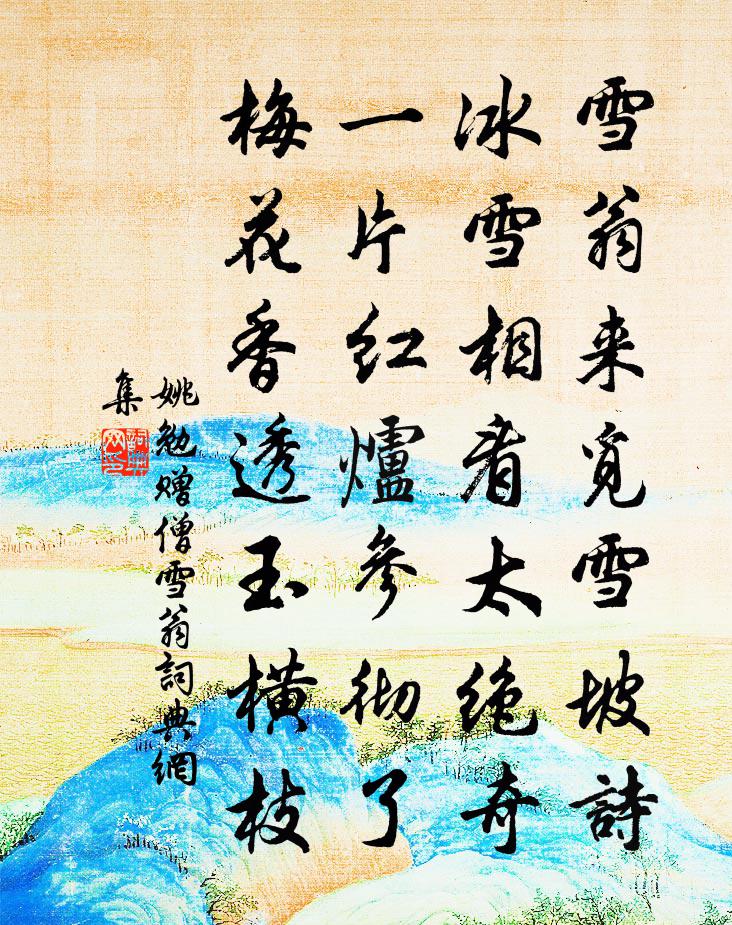 雪翁来覓雪坡詩
冰雪相看太絶奇
一片红爐参彻了
梅花香透玉橫枝
姚勉赠僧雪翁詞典網
集